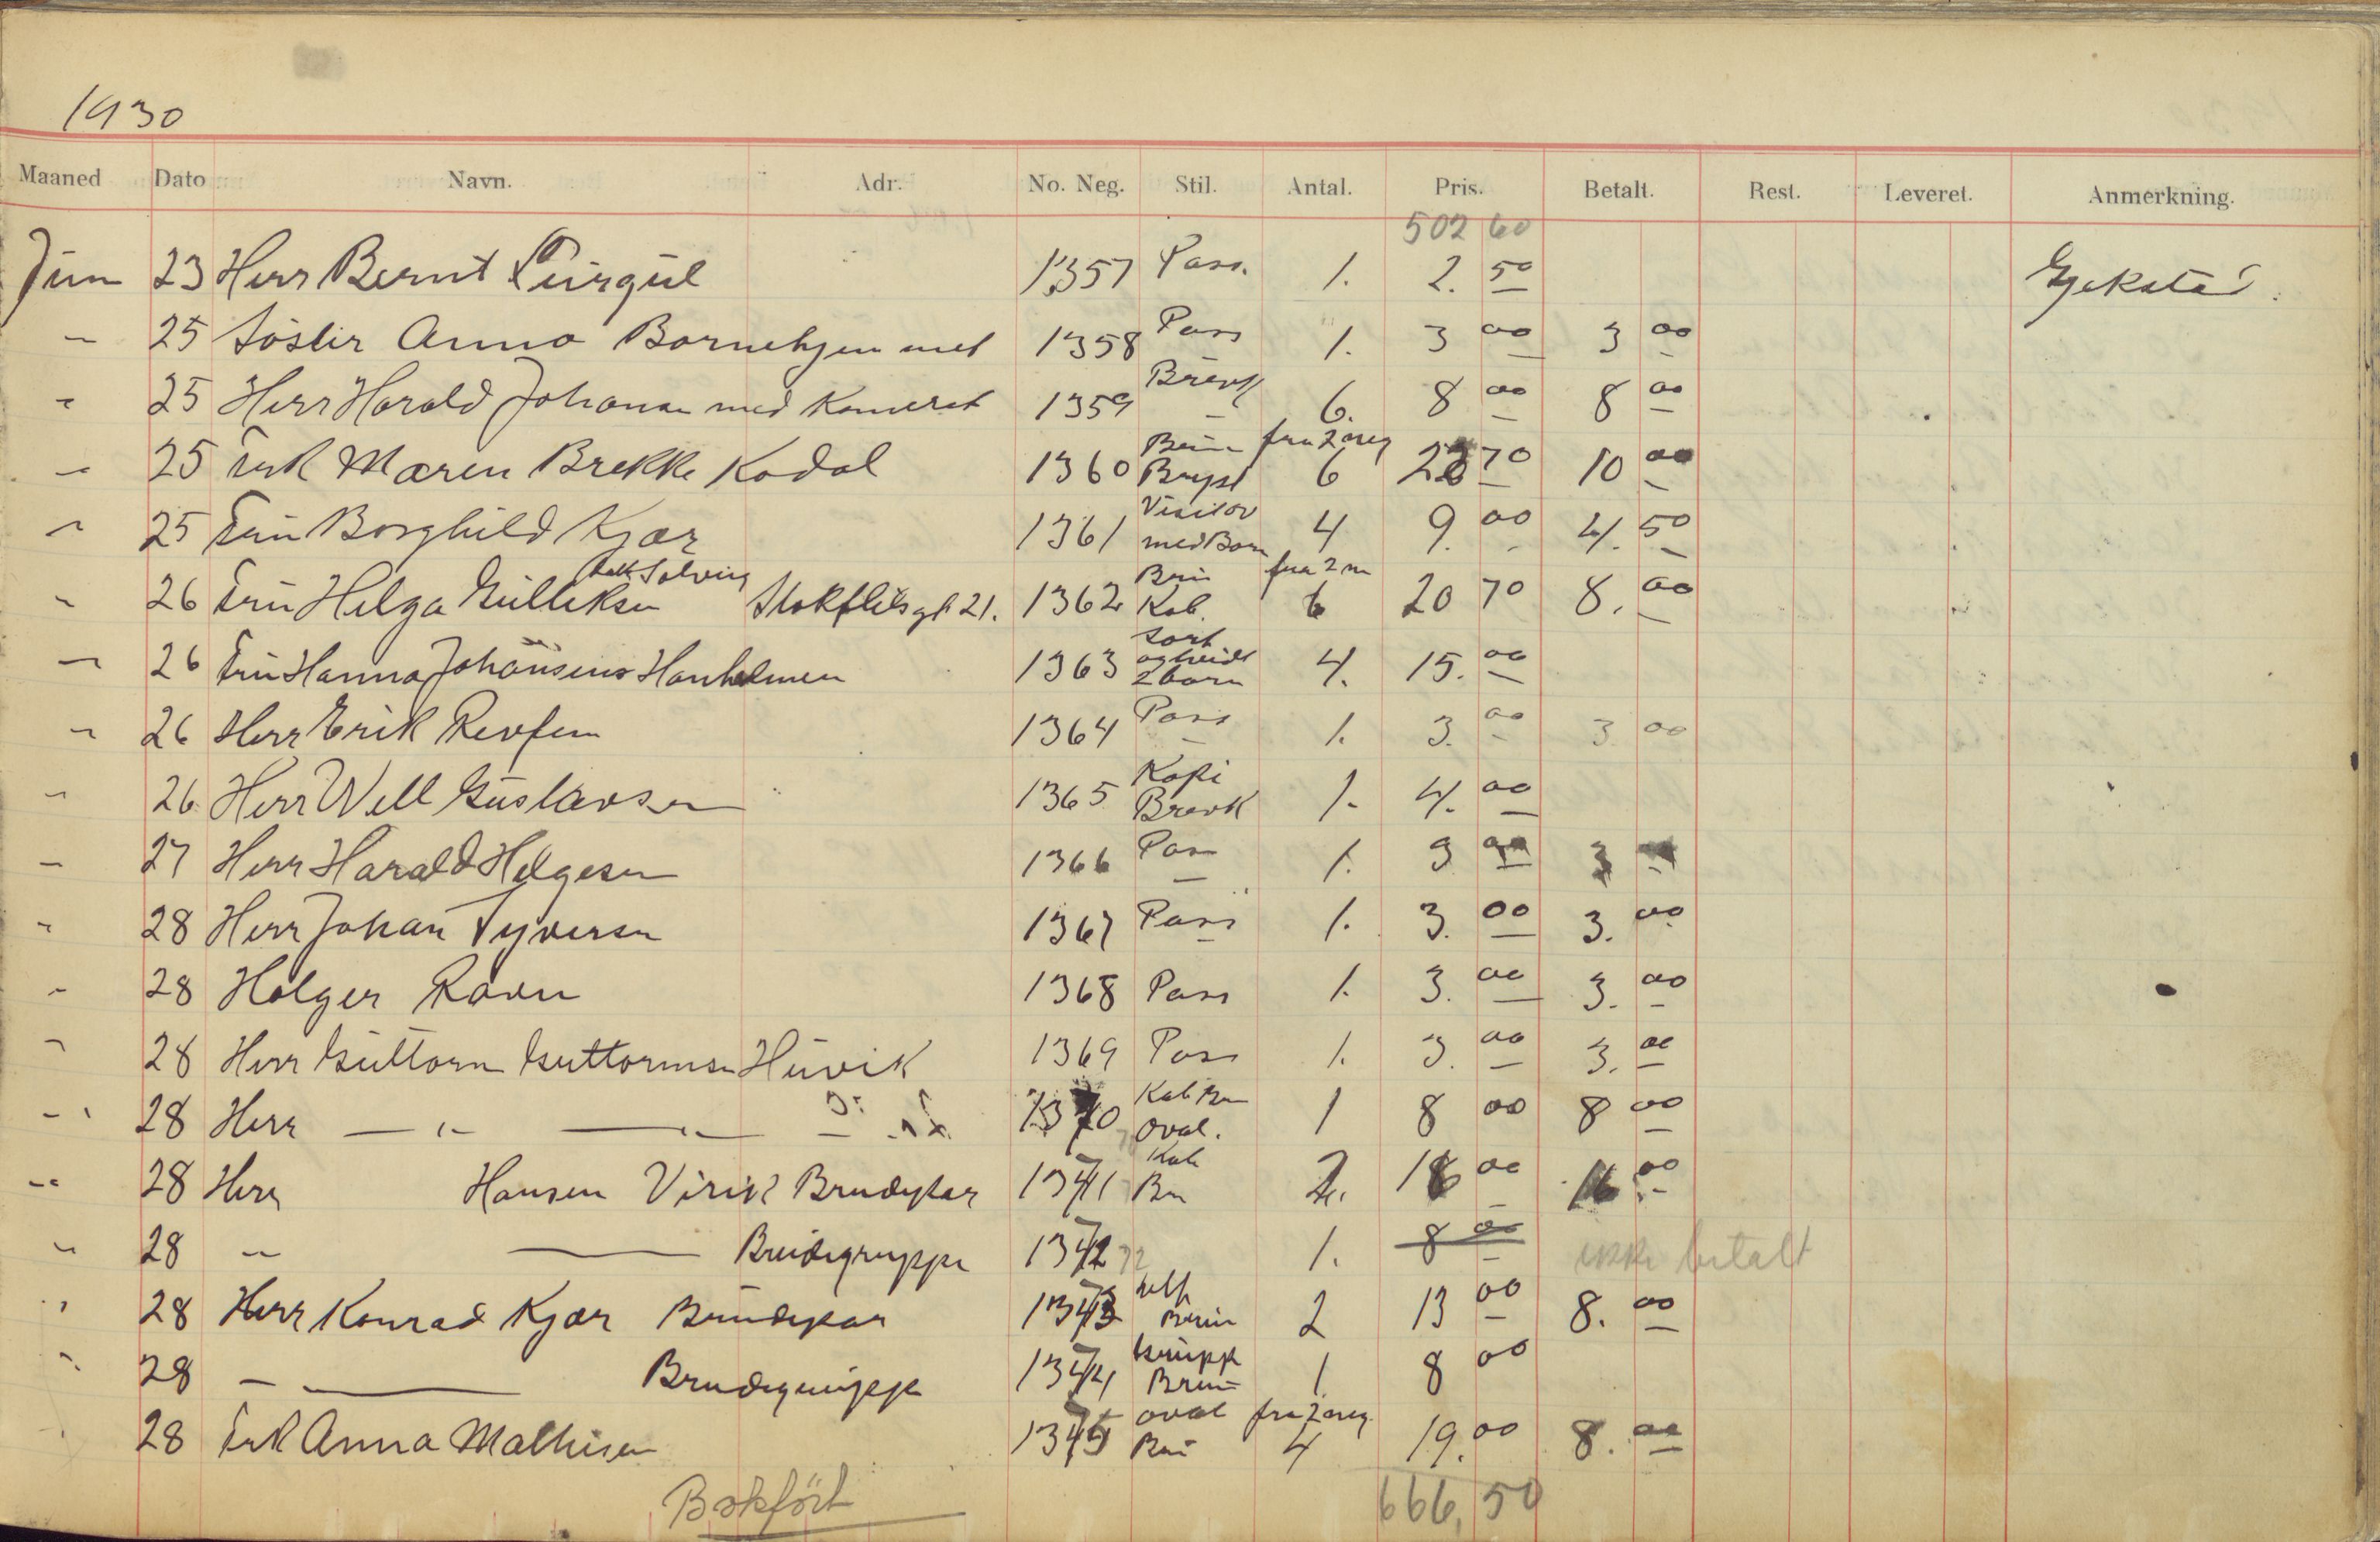 1930
Maaned Dato Navn. Adr. No. Neg. Stil. Antal. Pris. Betalt. Rest. Leveret. Anmerkning.
502 60
Jun 23 Herr Bernt 1357 Pass. 1. 2. 50
25 Søster Anna 1358 Pass 1. 3 00 3 00
25 Herr Harald Johansen med Kamerat 1359 Brevk 6. 8 00 8 00
25 Frk Maren Brekke Kodal 1360 Brun Bryst fra 2 neg 6 70 10 00
25 Fru Borghild Kjær 1361 Visitov med Barn 4 9. 00 4. 50
26 Fru Helga Gulliksen Solveig Stokfletsgt 21. 1362 Brun Kab. fra 2 n 6 20 70 8. 00
26 Fru Hanna Johansens 1363 Sort og hvidt 2 barn 4. 15. 00
26 Herr Erik 1364 Pass 1. 3. 00 3 00
26. Herr Well Gustavsen 1365 Kopi Brevk 1. 4. 00
27 Herr Harald Helgesen 1366 Pas 1. 3 00 3
28 Herr Johan Syversen 1367 Pass 1. 3. 00 3. 00
28 Holger Ravn 1368 Pass 1. 3. 00 3. 00
28 Herr Guttorm Guttormsen Huvik 1369 Pass 1. 3. 00 3. 00
28 Herr — " — — " — 1370 Kab Brun Oval. 1 8 00 8 00
28 Herr Hansen Virik Brudepar 1371 Kab Brun 2. 16 00 16 00
28 — " — Brudegruppe 1372 1. 8 00 ikke betalt
28 Herr Konrad Kjær Brudepar 1373 Brun 2 13 00 8. 00
28 — Brudegruppe 1374 Gruppe Brun 1 8 00
28 Frk Anna Mathisen 1375 oval Brun fra 2 neg. 4 19. 00 8. 00
Bokført 666,50